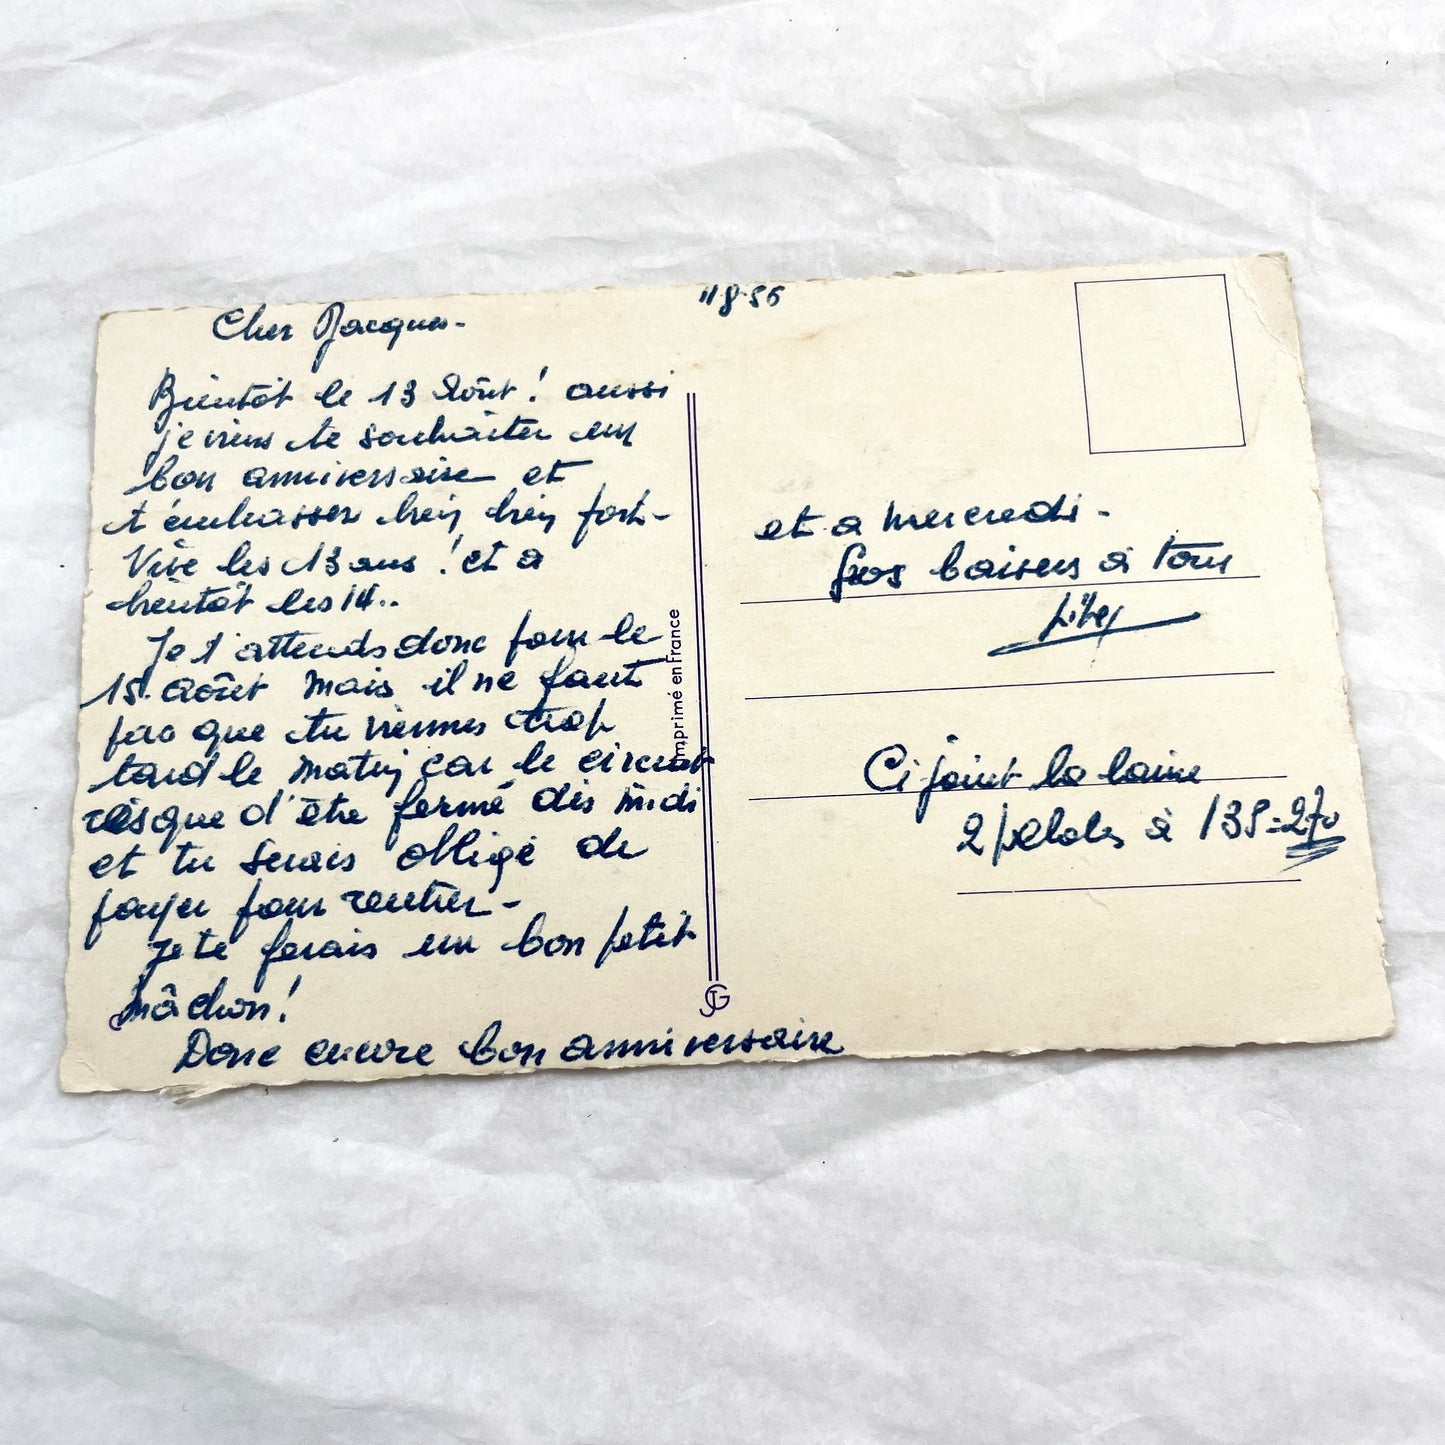 11 8-56
Cher Jacques-
Bientôt le 13 Août! aussi
je viens te souhaiter un
bon anniversaire et
t'embrasser bien bien fort-
Vive les 13 ans! et a
bientôt les 14..
Je t'attends donc pour le
15. août mais il ne faut
pas que tu viennes trop
tard le matin car le circuit
risque d'être fermé dès midi
et tu serais obligé de
payer pour rentrer-
Je te ferais un bon petit
mâchon!
Donc encore bon anniversaire
et a mercredi-
Gros baisers à tous
Ci joint la laine
2 pelotes à 135=270
Imprimé en France
JG